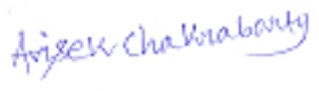 Avisek Chakraborty